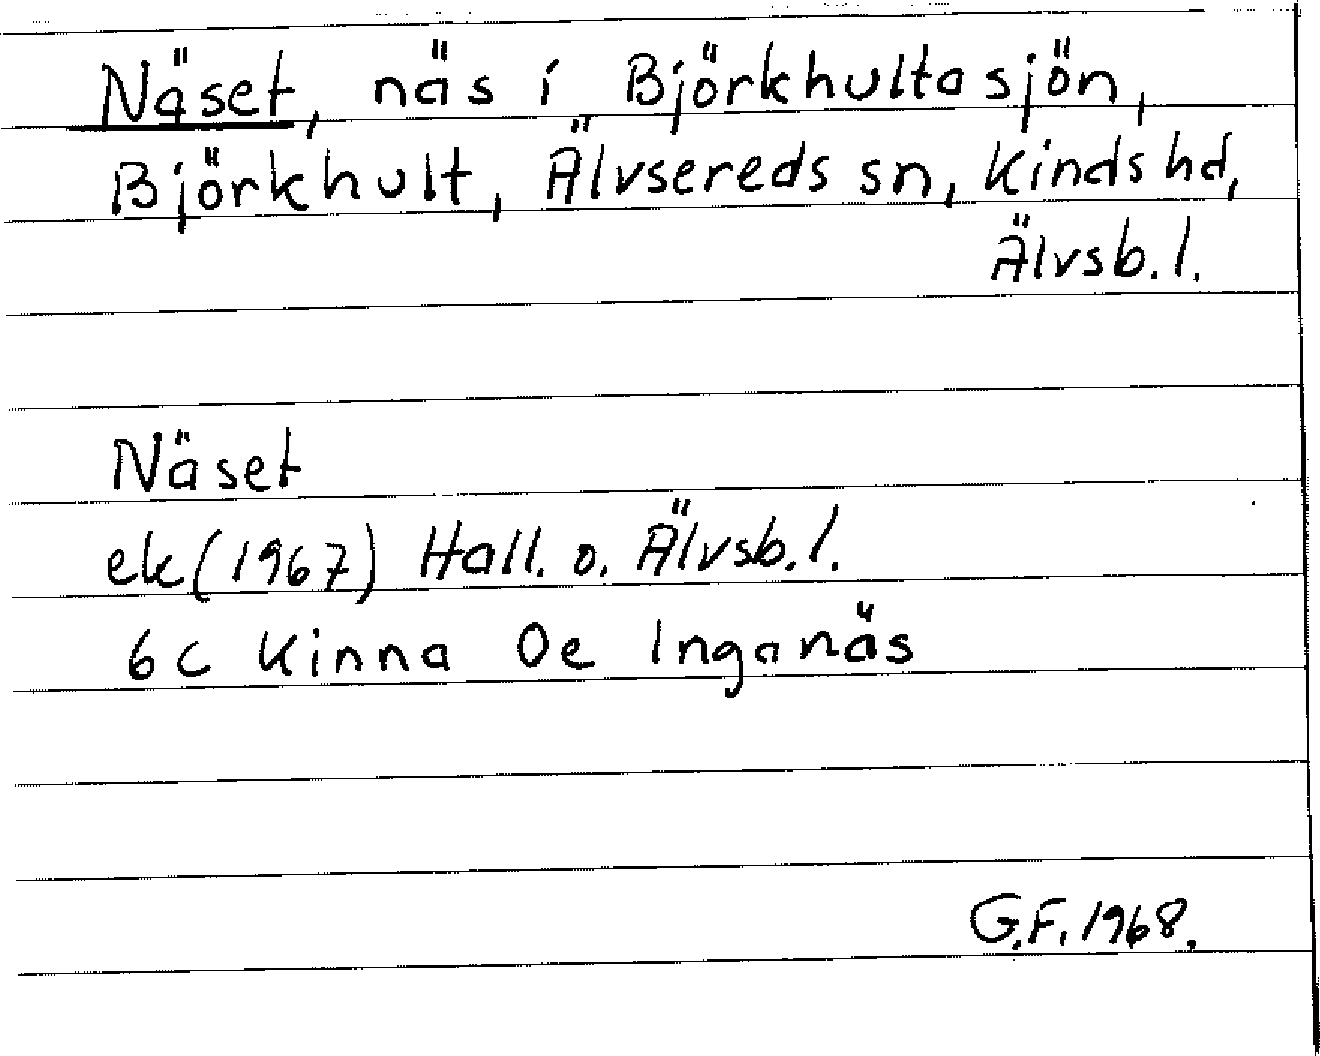 Näset, näs i Björkhultasjön,
Björkhult, Älvsereds sn, Kinds hd,
Älvsb. l.
Näset
ek (1967) Hall. o. Älvsb. l.
6c Kinna 0e Inganäs
G.F. 1968.